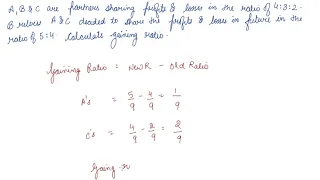 A, B & C are partners sharing profits & losses in the ratio of 4:3:2.
B retires A & C decided to share the profits & losses in future in the
ratio of 5:4. Calculate gaining ratio.
Gaining Ratio = New R - Old Ratio
A's = 5/9 - 4/9 = 1/9
C's = 4/9 - 2/9 = 2/9